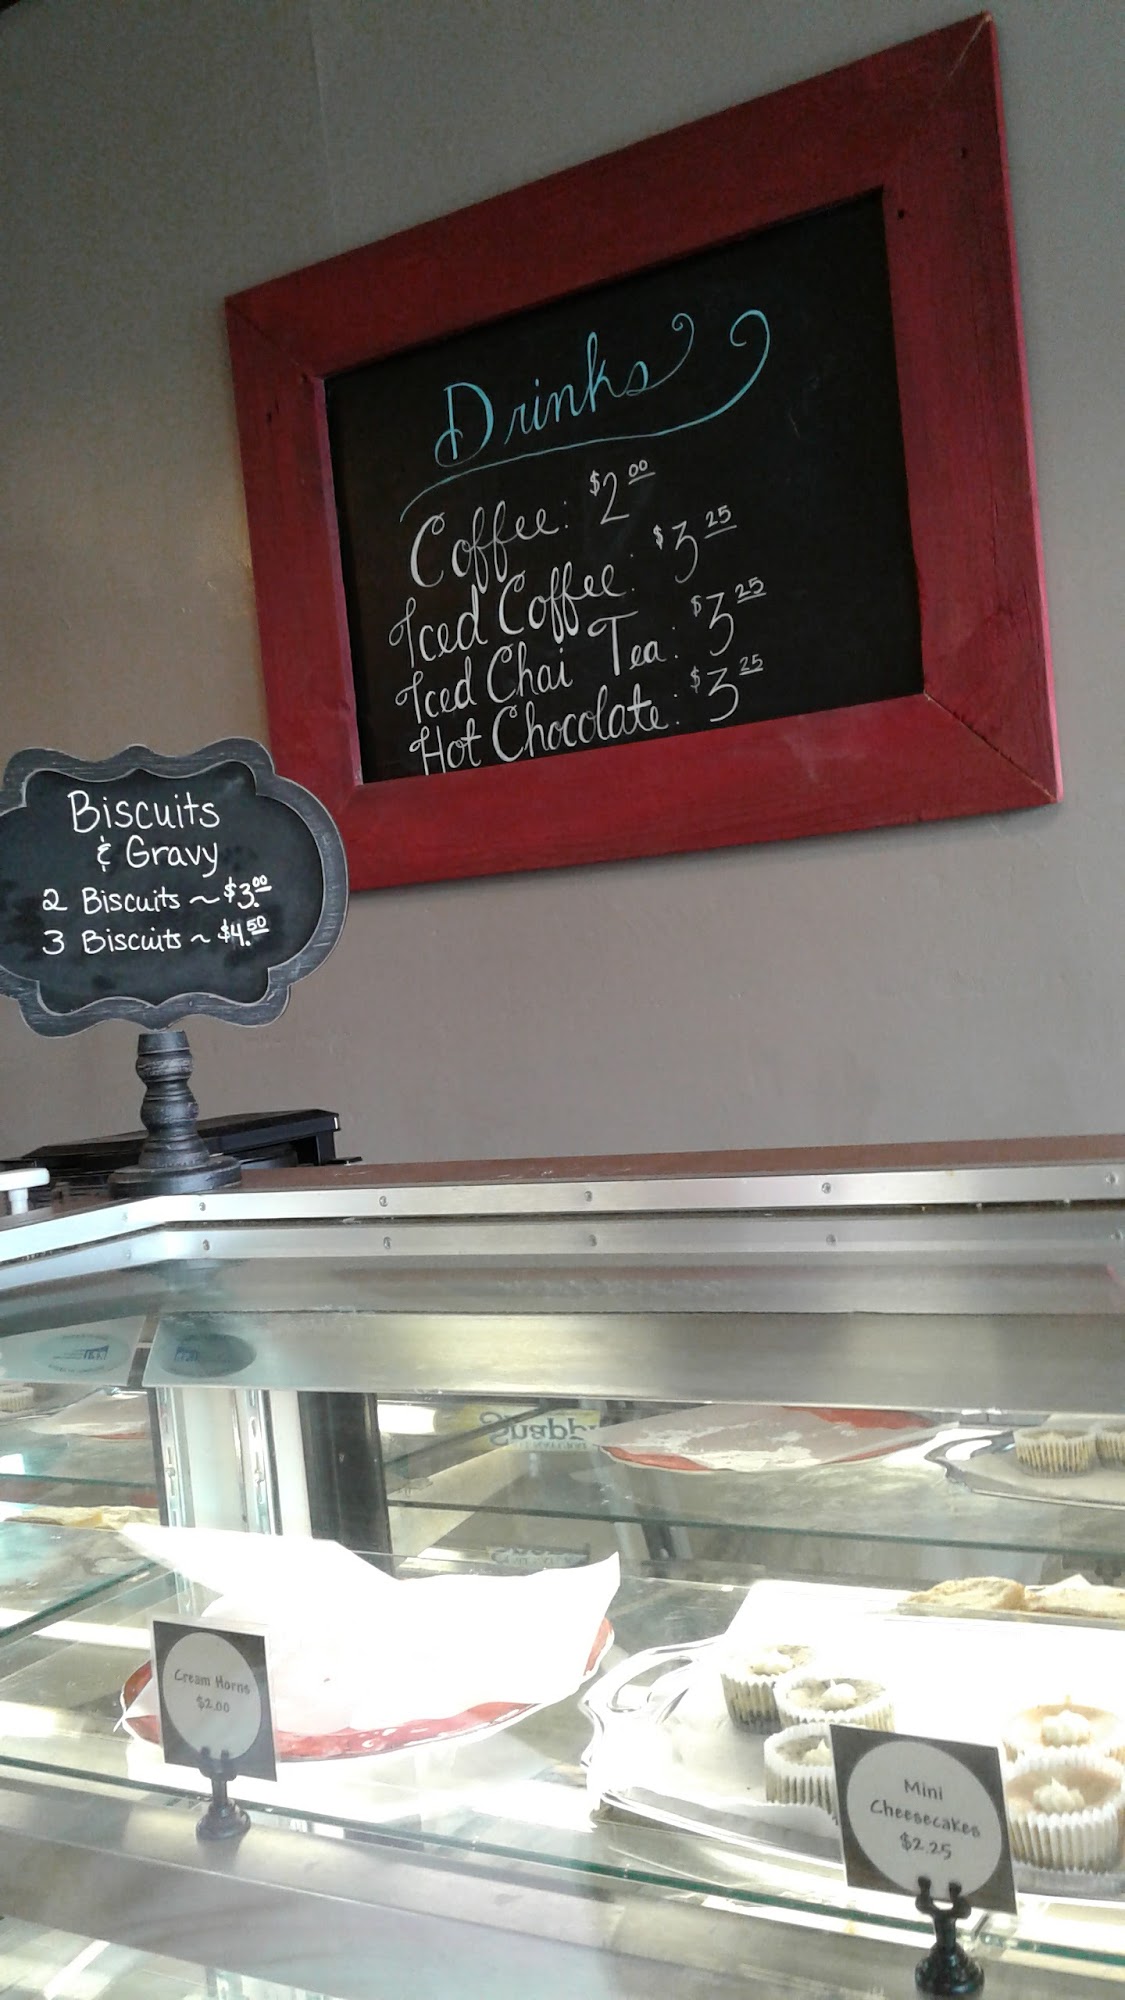 Drinks
Coffee: $2.00
Iced Coffee: $3.25
Iced Chai Tea: $3.25
Hot Chocolate: $3.25
Biscuits
& Gravy
2 Biscuits ~ $3.00
3 Biscuits ~ $4.50
Cream Horns
$2.00
Mini
Cheesecakes
$2.25